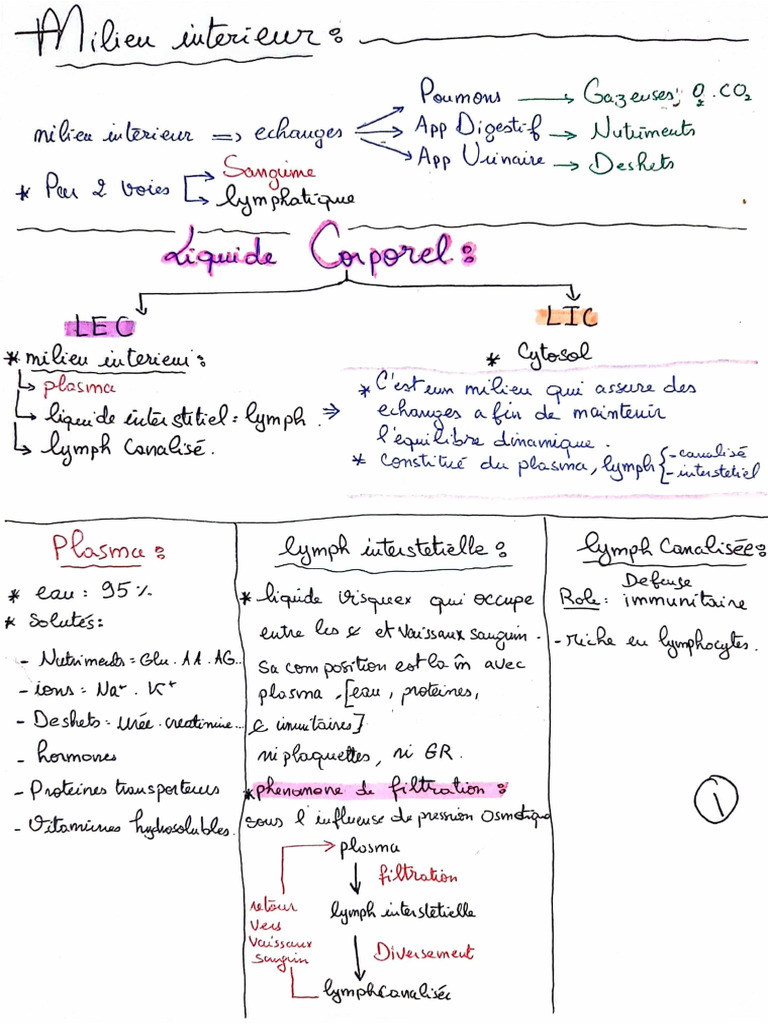 Milieu interieur :
milieu interieur => echanges
Poumons → Gazeuses; O2 . CO2
App Digestif → Nutriments
App Urinaire → Deshets
* Par 2 voies
Sanguine
lymphatique
Liquide Corporel :
LEC
* milieu interieur :
↳ plasma
↳ liquide interstitiel = lymph .
↳ lymph Canalisé .
LIC
* Cytosol
⇒ * C'est un milieu qui assure des
echanges a fin de maintenir
l'équilibre dinamique .
* constitué du plasma, lymph { - canalisé
- interstetiel
Plasma :
* eau : 95 %
* Solutés :
- Nutriments = Glu . AA . AG...
- ions = Na+ . K+
- Deshets = urée . creatinine...
- hormones
- Proteines transporteurs
- Vitamines hydrosolubles .
lymph interstetielle :
* liquide visquex qui occupe
entre les c et vaissaux sanguin .
Sa composition est la m̂ avec
plasma . [eau , proteines,
c imunitaires]
ni plaquettes, ni GR .
* phenomone de filtration :
sous l'influense de pression Osmotique
plasma
filtration
lymph interstetielle
Diversement
lymph canalisée
retour
vers
vaissaux
sanguin
lymph Canalisée :
Defense
Role : immunitaire
- riche en lymphocytes .
1